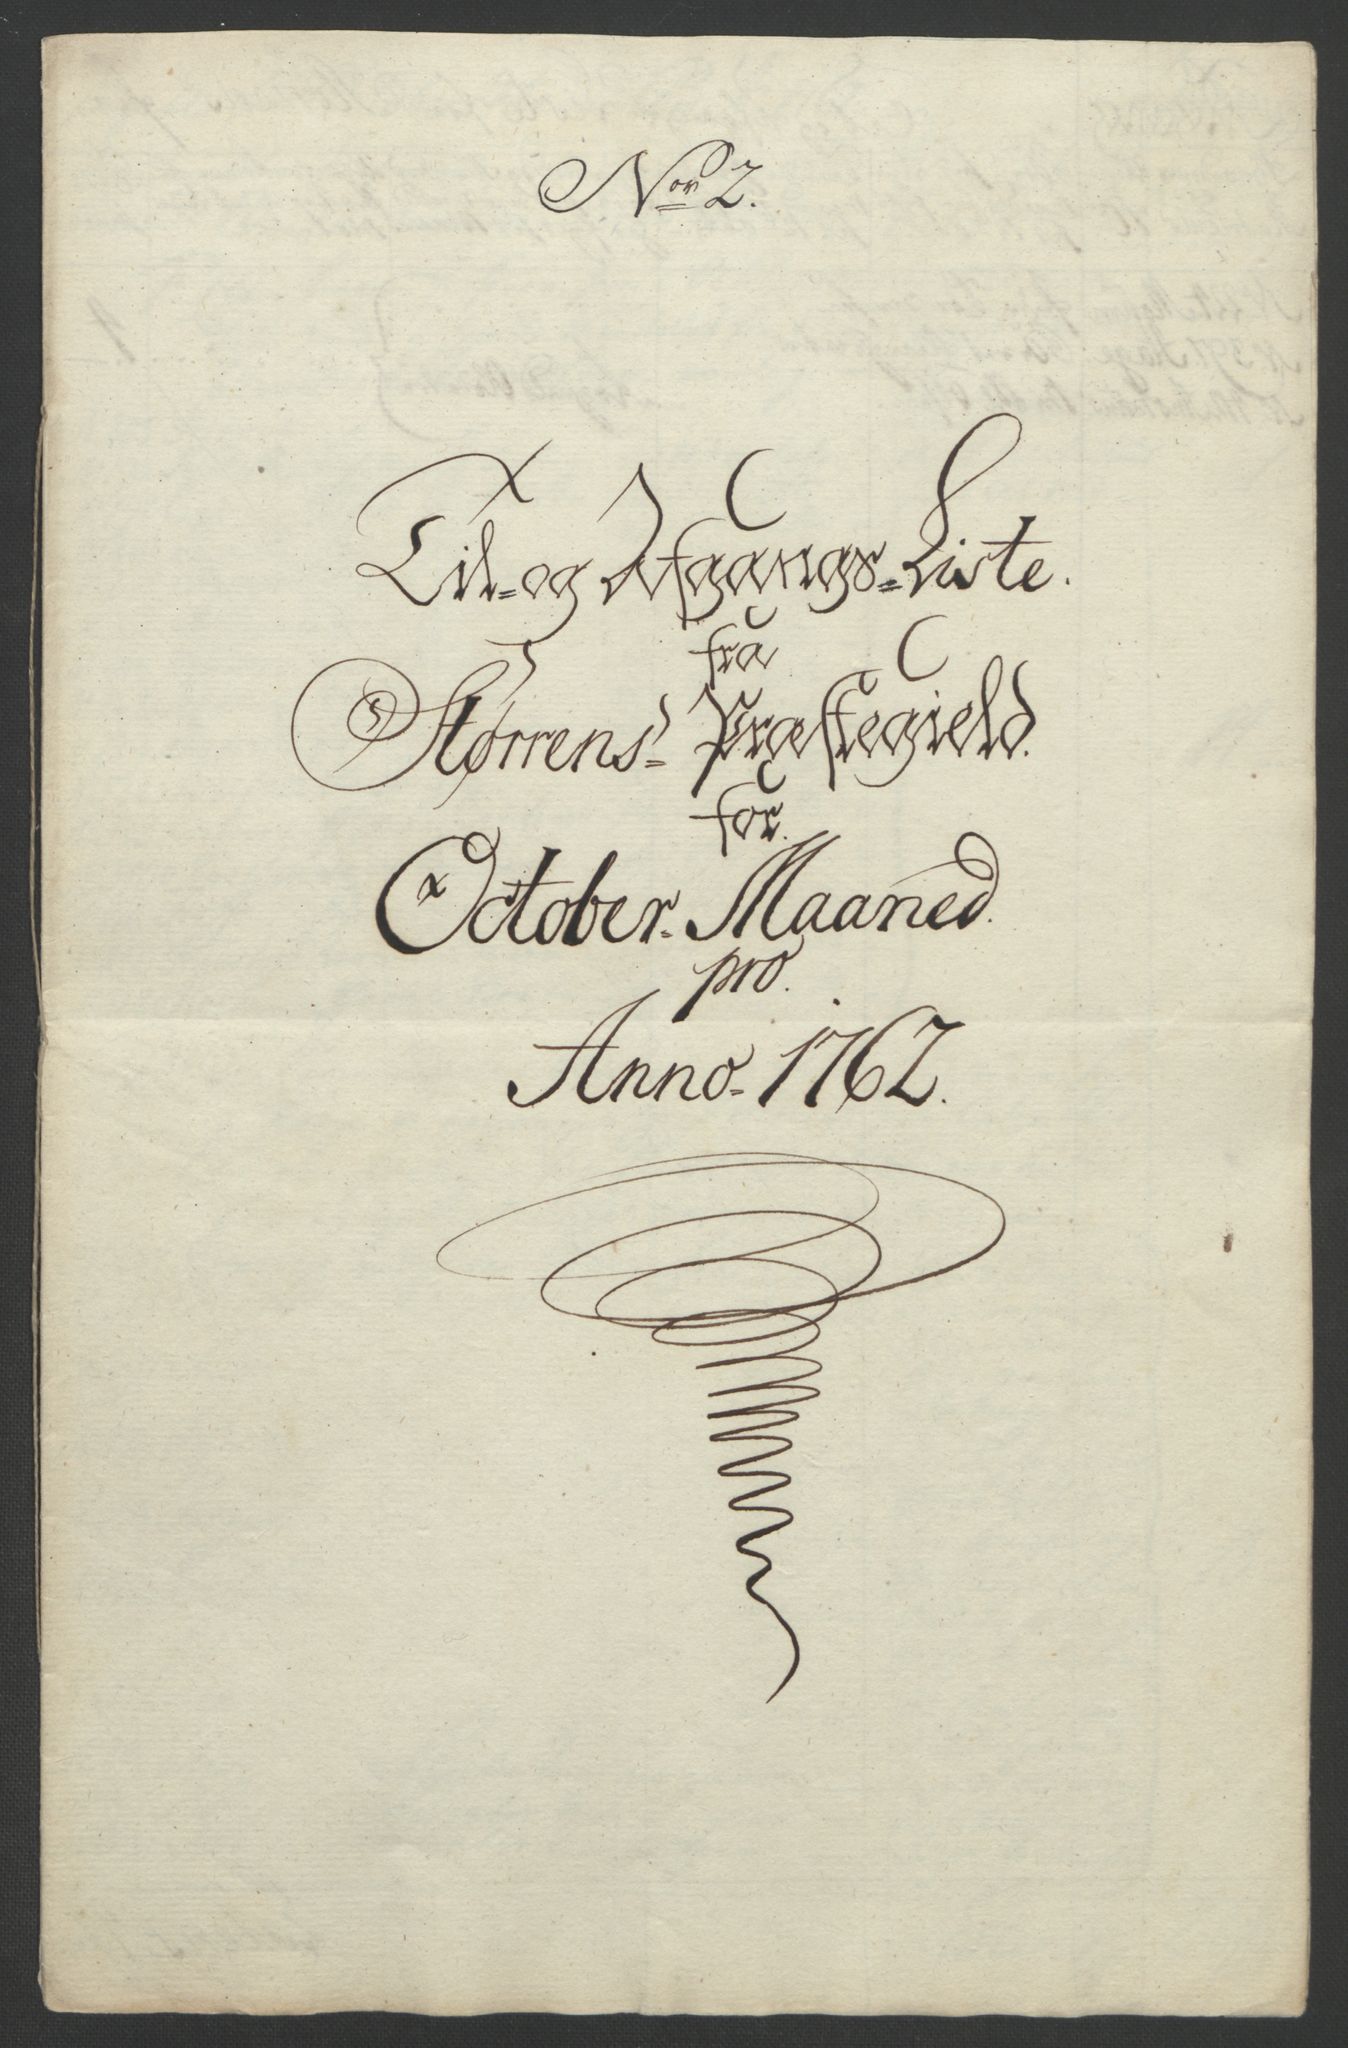 Nor 2.
Til- og Afgangs-Liste.
fra
Størrens- Præstegield.
for.
October. Maaned.
pro.
Anno- 1762.